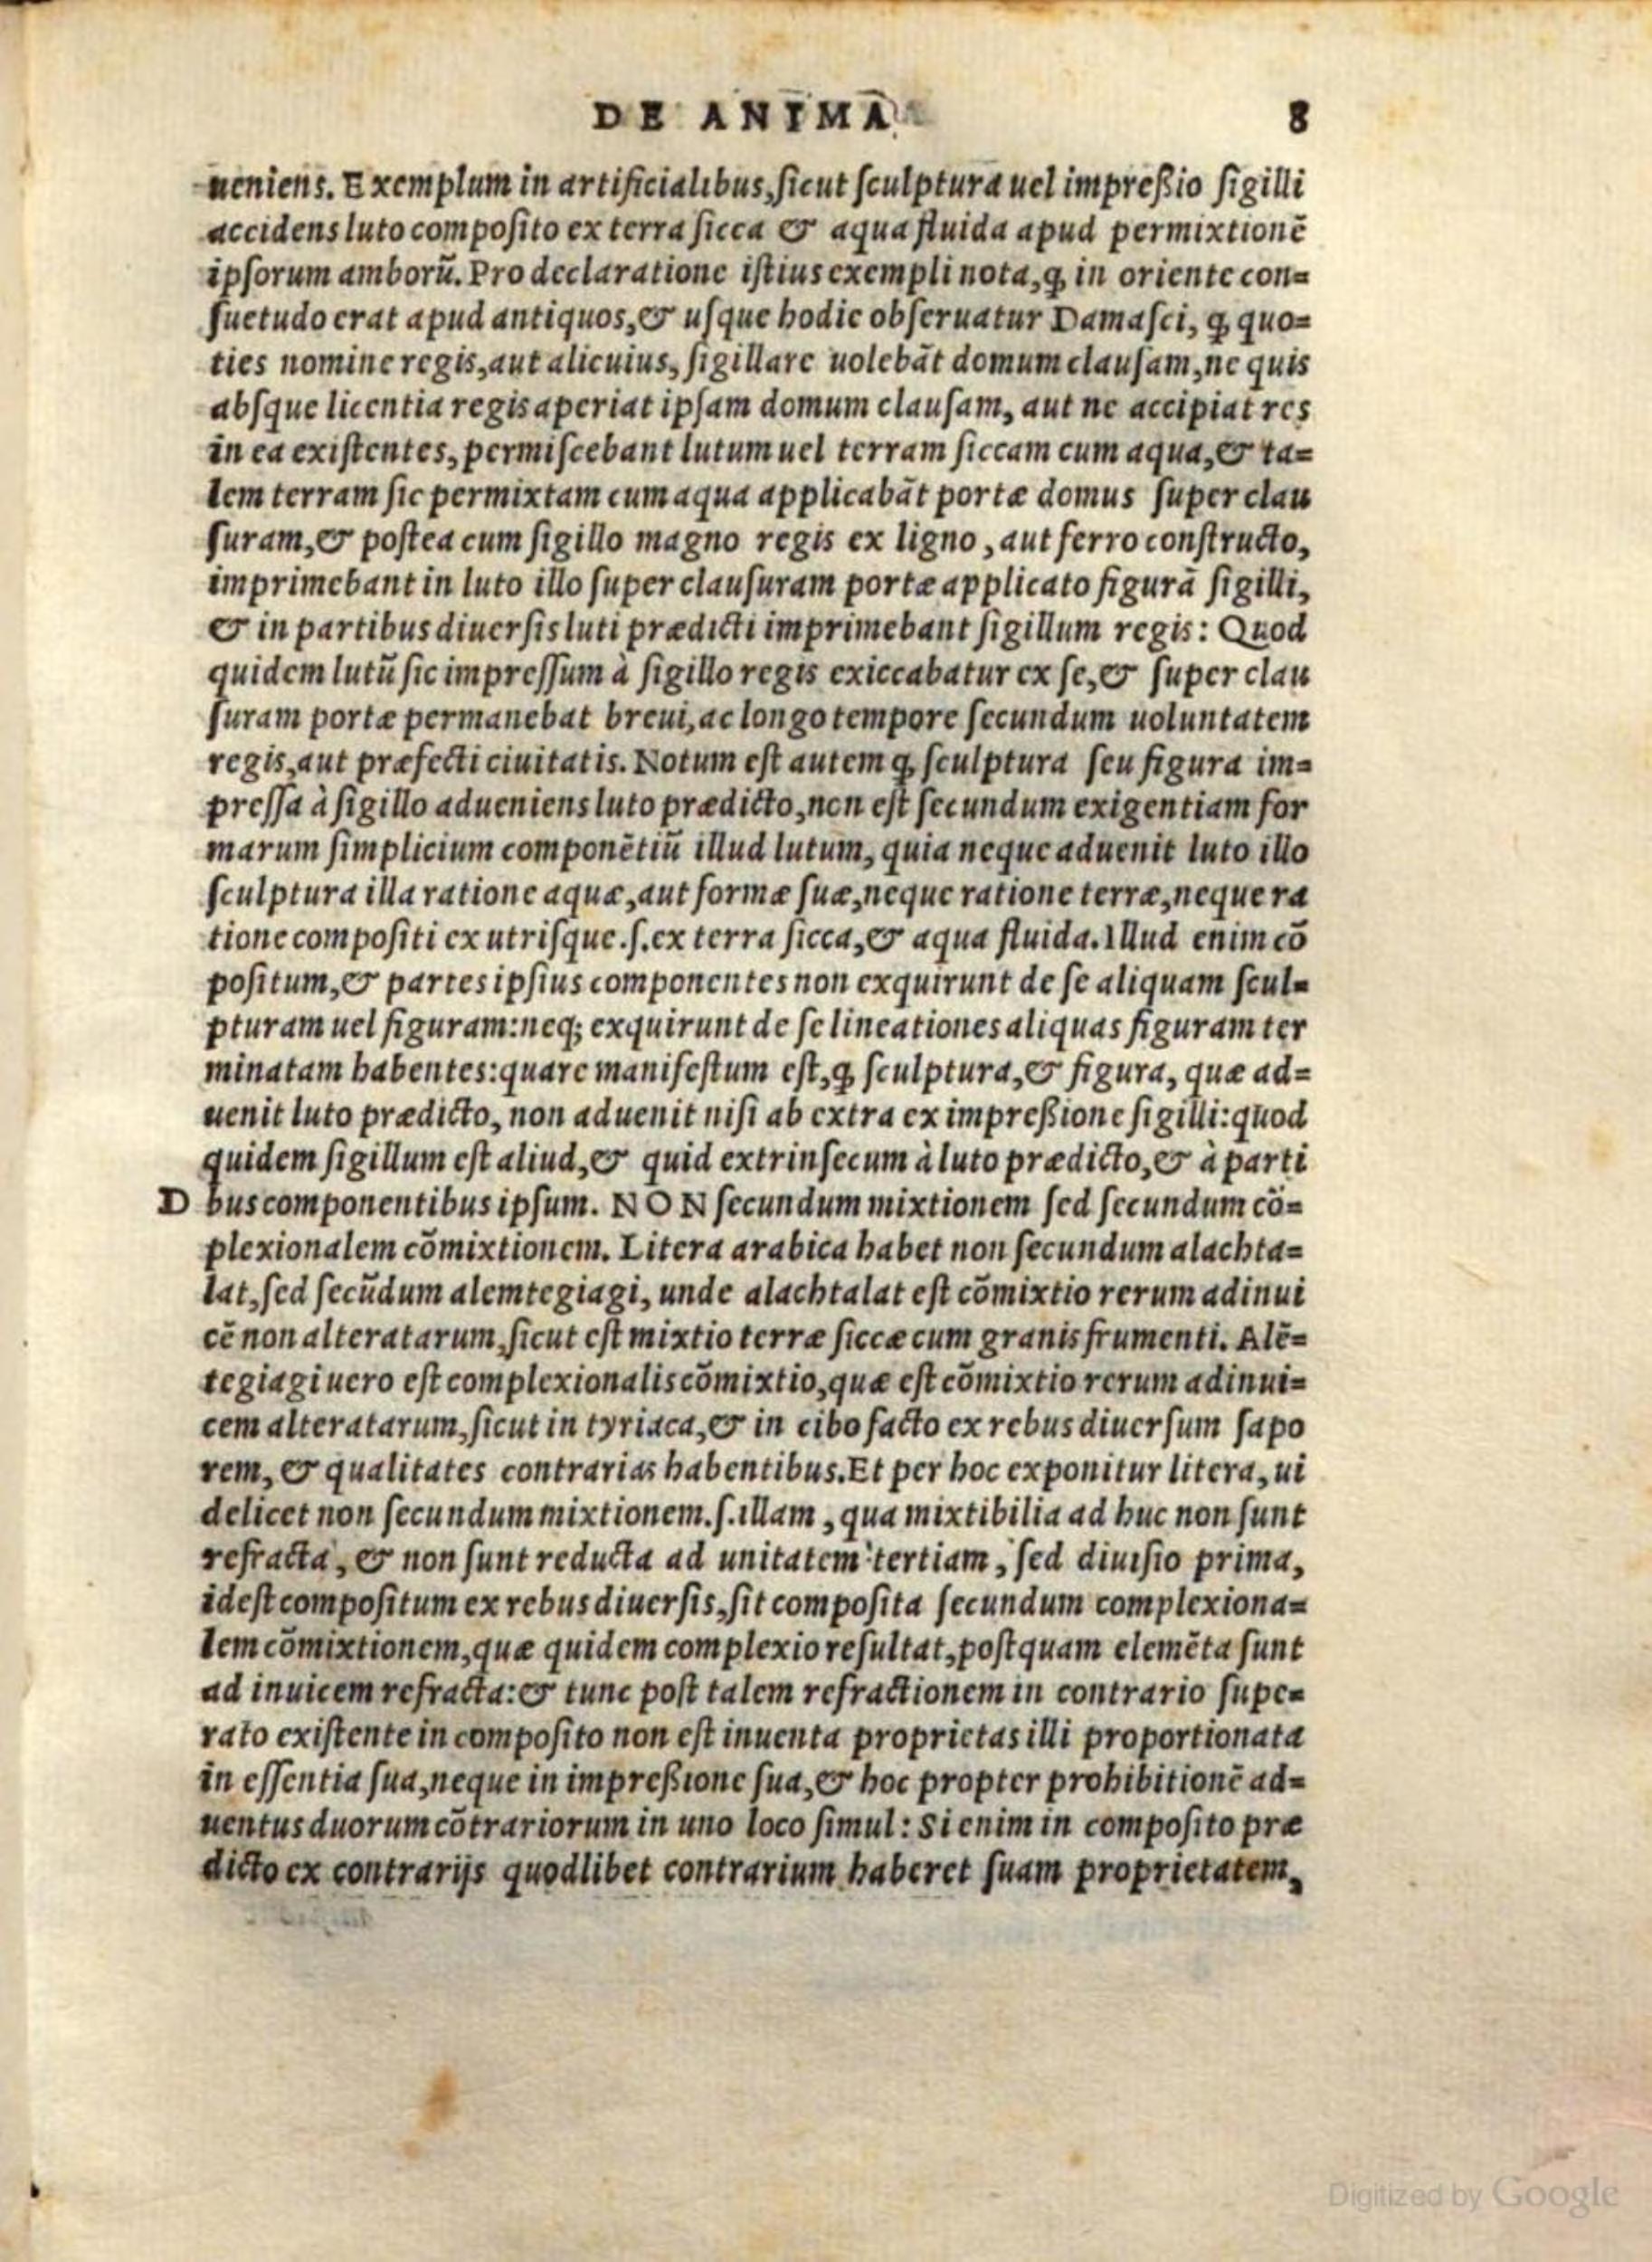 DE ANIMA 8
ueniens. Exemplum in artificialibus, sicut sculptura uel impreßio sigilli
accidens luto composito ex terra sicca & aqua fluida apud permixtionē
ipsorum amborū. Pro declaratione istius exempli nota, ꝙ in oriente con=
suetudo erat apud antiquos, & usque hodie obseruatur Damasci, ꝙ quo=
ties nomine regis, aut alicuius, sigillare uolebāt domum clausam, ne quis
absque licentia regis aperiat ipsam domum clausam, aut ne accipiat res
in ea existentes, permiscebant lutum uel terram siccam cum aqua, & ta=
lem terram sic permixtam cum aqua applicabāt portæ domus super clau
suram, & postea cum sigillo magno regis ex ligno, aut ferro constructo,
imprimebant in luto illo super clausuram portæ applicato figurā sigilli,
& in partibus diuersis luti prædicti imprimebant sigillum regis: Quod
quidem lutū sic impressum à sigillo regis exiccabatur ex se, & super clau
suram portæ permanebat breui, ac longo tempore secundum uoluntatem
regis, aut præfecti ciuitatis. Notum est autem ꝙ sculptura seu figura im=
pressa à sigillo adueniens luto prædicto, non est secundum exigentiam for
marum simplicium componētiū illud lutum, quia neque aduenit luto illo
sculptura illa ratione aquæ, aut formæ suæ, neque ratione terræ, neque ra
tione compositi ex utrisque .s. ex terra sicca, & aqua fluida. Illud enim cō
positum, & partes ipsius componentes non exquirunt de se aliquam scul=
pturam uel figuram: neq; exquirunt de se lineationes aliquas figuram ter
minatam habentes: quare manifestum est, ꝙ sculptura, & figura, quæ ad=
uenit luto prædicto, non aduenit nisi ab extra ex impreßione sigilli: quod
quidem sigillum est aliud, & quid extrinsecum à luto prædicto, & à parti
D bus componentibus ipsum. NON secundum mixtionem sed secundum cō=
plexionalem cōmixtionem. Litera arabica habet non secundum alachta=
lat, sed secūdum alemtegiagi, unde alachtalat est cōmixtio rerum adinui
cē non alteratarum, sicut est mixtio terræ siccæ cum granis frumenti. Alē=
tegiagi uero est complexionalis cōmixtio, quæ est cōmixtio rerum adinui=
cem alteratarum, sicut in tyriaca, & in cibo facto ex rebus diuersum sapo
rem, & qualitates contrarias habentibus. Et per hoc exponitur litera, ui
delicet non secundum mixtionem .s. illam, qua mixtibilia ad huc non sunt
refracta, & non sunt reducta ad unitatem tertiam, sed diuisio prima,
idest compositum ex rebus diuersis, sit composita secundum complexiona=
lem cōmixtionem, quæ quidem complexio resultat, postquam elemēta sunt
ad inuicem refracta: & tunc post talem refractionem in contrario supe=
rato existente in composito non est inuenta proprietas illi proportionata
in essentia sua, neque in impreßione sua, & hoc propter prohibitionē ad=
uentus duorum cōtrariorum in uno loco simul: Si enim in composito præ
dicto ex contrarijs quodlibet contrarium haberet suam proprietatem,
Digitized by Google